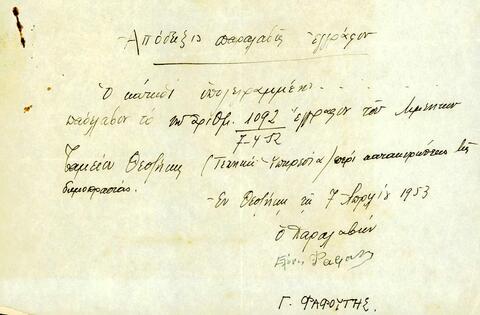 Απόδειξις παραλαβής εγγράφου
Ο κάτωθι υπογεγραμμένος
παρέλαβον το υπ' αριθμ. 1092 έγγραφον του Λιμενικού
7-4-52
Ταμείου Θεσ/νίκης (Τεχνική Υπηρεσία) περί κατακυρώσεως της
δημοπρασίας.
Εν Θεσ/νίκη τη 7 Απριλίου 1953
Ο Παραλαβών
Γ. ΦΑΦΟΥΤΗΣ.